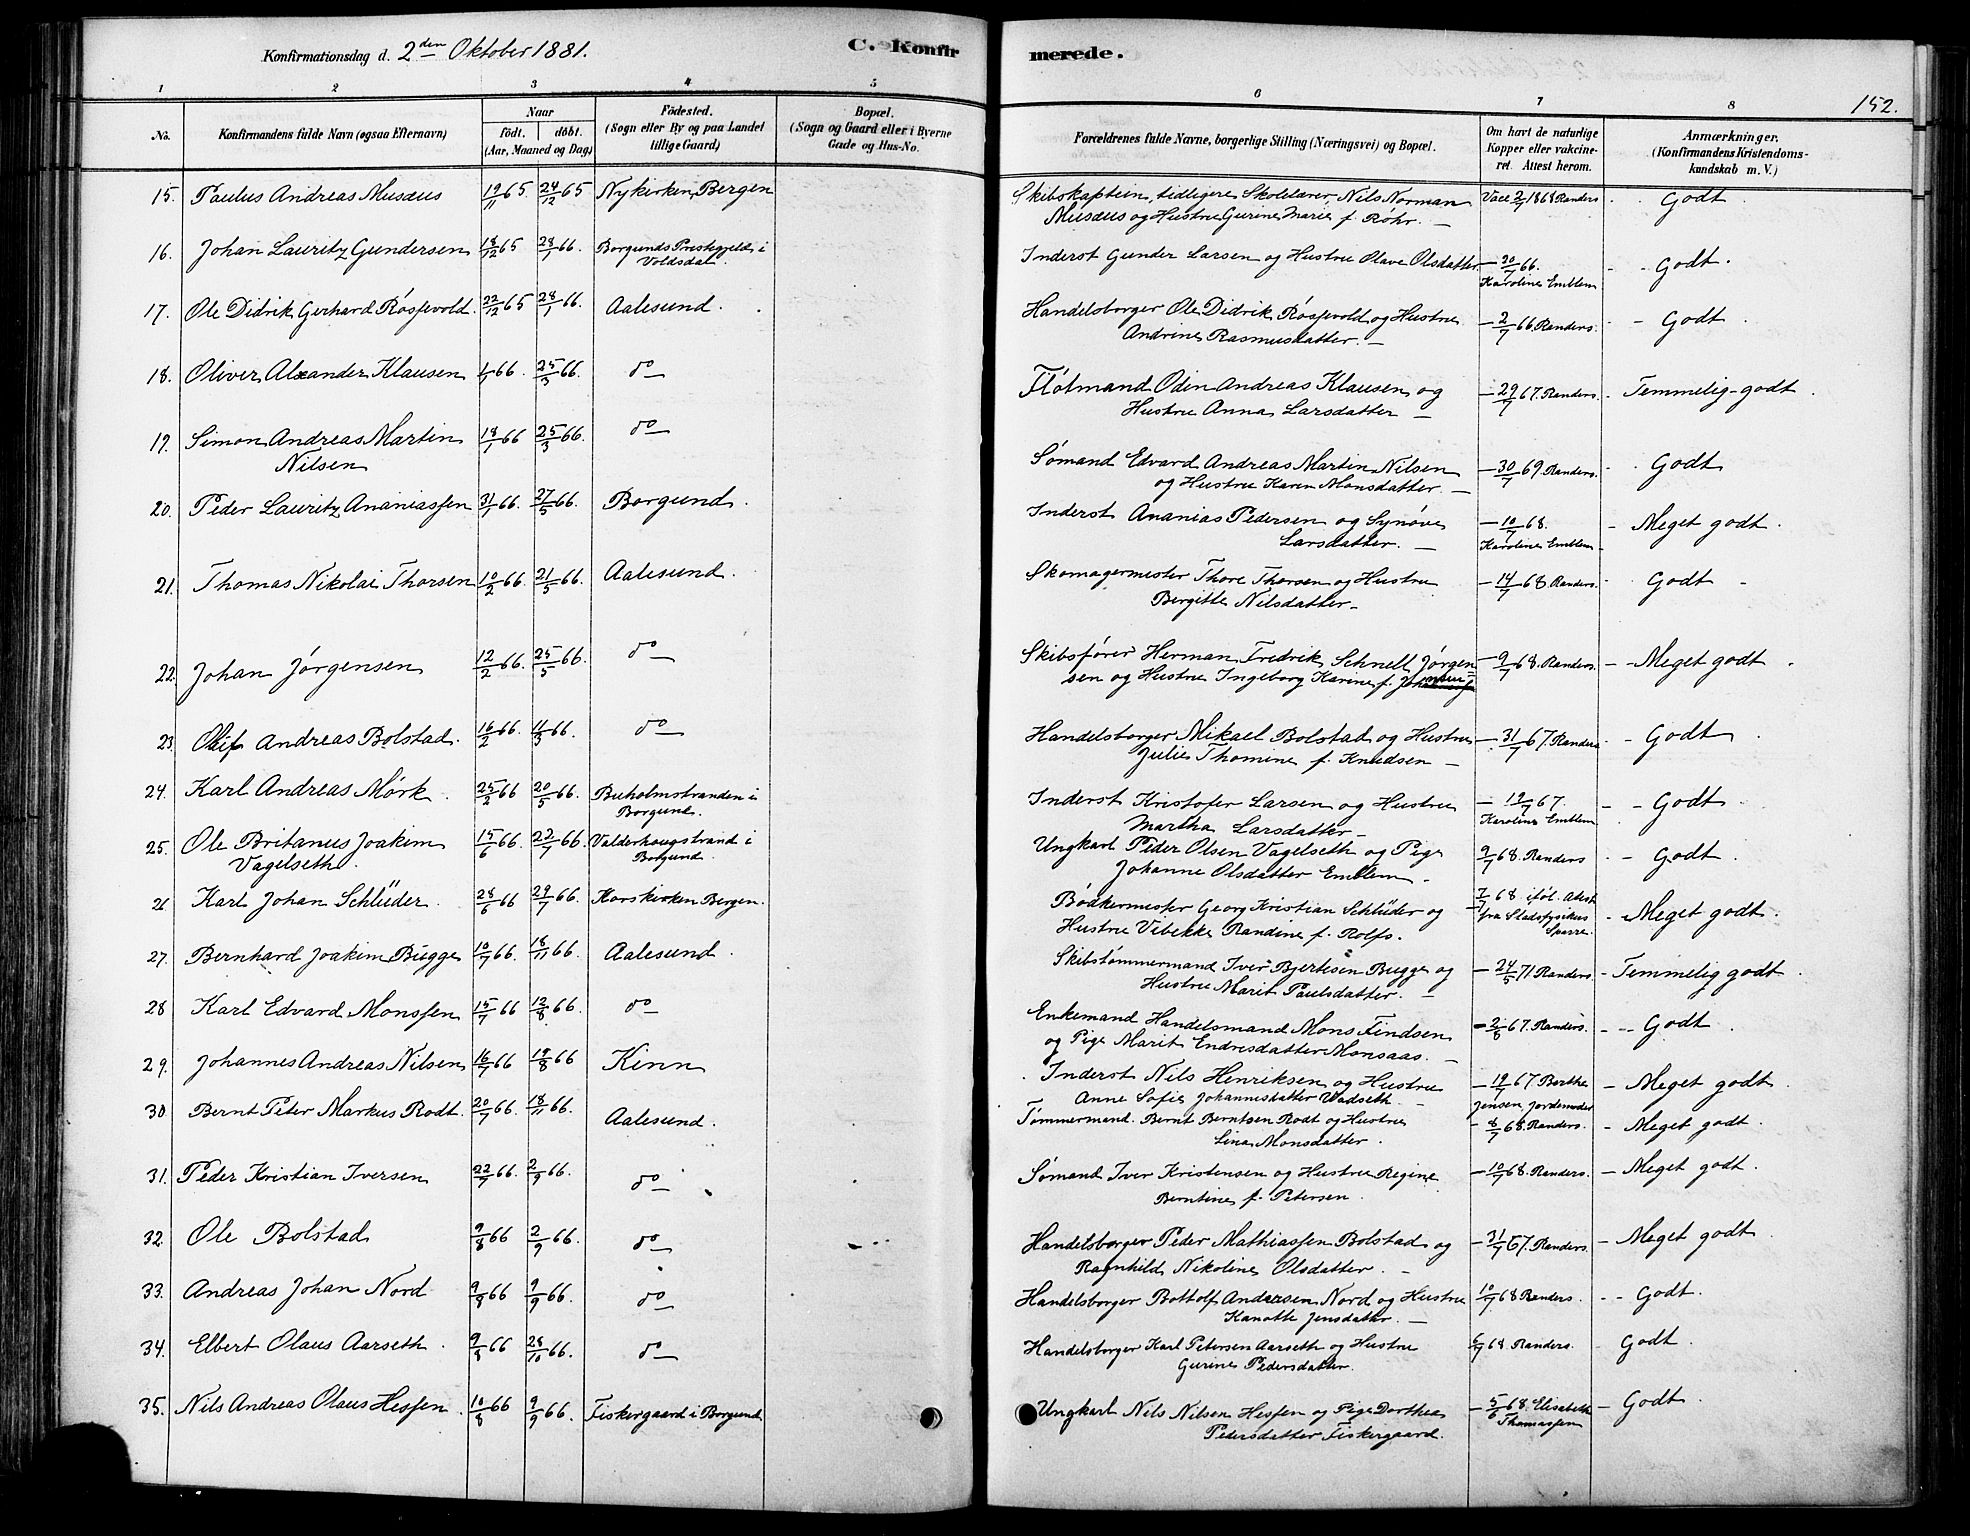 Konfirmationsdag d. 2den Oktober 1881.
C. Konfirmerede.
152.
1 2 3 4 5 6 7 8
No. Konfirmandens fulde Navn (ogsaa Efternavn) Naar födt. döbt. (Aar, Maaned og Dag) Födested. (Sogn eller By og paa Landet tillige Gaard) Bopæl. (Sogn og Gaard eller i Byerne Gade og Hus-No. Forældrenes fulde Navne, borgerlige Stilling (Næringsvei) og Bopæl. Om havt de naturlige Kopper eller vakcineret. Attest herom. Anmærkninger. (Konfirmandens Kristendomskundskab m. V.)
15. Paulus Andreas Musæus 19/11 65 24/12 65 Nykirken, Bergen Skibskaptein, tidligere Skolelærer Nils Norman Vacc 2/7 1868 Randers Godt
Musæus og Hustru Gurine Marie f. Röhr. —
16. Johan Lauritz Gundersen 18/12 65 28/1 66. Borgunds Prestegjeld i Inderst Gunder Larsen og Hustru Olave Olsdatter — 20/7 66. - Godt.
Voldsdal. Karoline Emblem
17. Ole Didrik Gerhard Rössevold. 22/12 65 28/1 66. Aalesund. Handelsborger Ole Didrik Rössevold og Hustru — 2/7 66. Randers. - Godt
Andrine Rasmusdatter. —
18. Oliver Alexander Klausen 1/1 66. 25/3 66. do — Flötmand Odin Andreas Klausen og — 29/7 67. Randers. - Temmelig godt.
Hustru Anna Larsdatter —
19. Simon Andreas Martin 18/1 66 25/3 66. do — Sömand Edvard Andreas Martin Nilsen — 30/7 69. Randers. Godt
Nilsen og Hustru Karen Monsdatter. —
20. Peder Lauritz Ananiassen 31/1 66. 27/5 66. Borgund. Inderst Ananias Pedersen og Synöve — 10/7 68. - Meget godt.
Larsdatter. — Karoline Emblem
21. Thomas Nikolai Thorsen 10/2 66. 21/5 66. Aalesund. Skomagermester Thore Thorsen og Hustru — 14/7 68. Randers. Godt -
Bergitte Nilsdatter —
22. Johan Jörgensen 12/2 66. 25/5 66. do — Skibsförer Herman Fredrik Schnell Jörgen- — 9/7 68. Randers. - Meget godt.
sen og Hustru Ingeborg Karine f.
23. Olif Andreas Bolstad. 16/2 66. 11/3 66. do — Handelsborger Mikael Bolstad og Hustru — 31/7 67. Randers - Godt
Julie Thomine f. Knudsen —
24. Karl Andreas Mörk. 25/2 66 20/5 66. Buholmstranden i Inderst Kristofer Larsen og Hustru — 19/7 67. - Godt
Borgund. Martha Larsdatter — Karoline Emblem
25. Ole Britanus Joakim 15/6 66. 22/7 66. Valderhaugstrand i Ungkarl Peder Olsen Vagelseth og Pige 9/7 68. Randers - Godt.
Vagelseth. Borgund. Johanne Olsdatter Emblem. —
26 Karl Johan Schlüder. 28/6 66 29/7 66. Korskirken Bergen. Bödkermester Georg Kristian Schlüder og 7/7 68 iföl. Attest - Meget godt.
Hustru Vibekke Randine f. Rolfs. fra Stadsfysikus Sparre.
27. Bernhard Joakim Bugge 10/7 66. 18/11 66. Aalesund. Skibstömmermand Iver Bjertesen Bugge og — 24/5 71 Randers. - Temmelig godt.
Hustru Marit Paulsdatter. —
28 Karl Edvard Monssen 15/7 66 12/8 66. do — Enkemand Handelsmand Mons Findsen — 2/8 67. Randers. - Godt.
og Pige Marit Endresdatter Monsaas. —
29. Johannes Andreas Nilsen 16/7 66 19/8 66 Kinn Inderst Nils Henriksen og Hustru — 19/7 67 Berthe - Meget godt.
Anne Sofie Johannesdatter Vadseth. — Jensen, Jordemoder
30 Bernt Peter Markus Rodt. 20/7 66. 18/11 66. Aalesund. Tömmermand. Bernt Berntsen Rodt og Hustru - 8/7 68. Randers. - Meget godt.
Lina Monsdatter.
31. Peder Kristian Iversen 22/7 66. 2/9 66. do — Sömand Iver Kristensen og Hustru Regine — 10/7 68. Randers. - Meget godt.
Berntine f. Petersen.
32. Ole Bolstad 9/8 66 2/9 66. do — Handelsborger Peder Mathiassen Bolstad og — 31/7 67. Randers. - Meget godt.
Ragnhild Nikoline Olsdatter. —
33. Andreas Johan Nord 9/8 66 9/9 66. do — Handelsborger Bottolf Andersen Nord og Hustru 10/7 68 Randers. - Godt.
Kanotte Jensdatter. —
34. Elbert Olaus Aarseth. 9/8 66 28/10 66. do — Handelsborger Karl Petersen Aarseth og Hustru 6/7 68 Randers. - Godt.
Gurine Pedersdatter.
35. Nils Andreas Olaus Hessen. 10/8 66 9/9 66. Fiskergaard i Borgund Ungkarl Nils Nilsen Hessen og Pige Dorthea — 5/6 68. Elisabeth - Godt.
Pedersdatter Fiskergaard. Thomassen